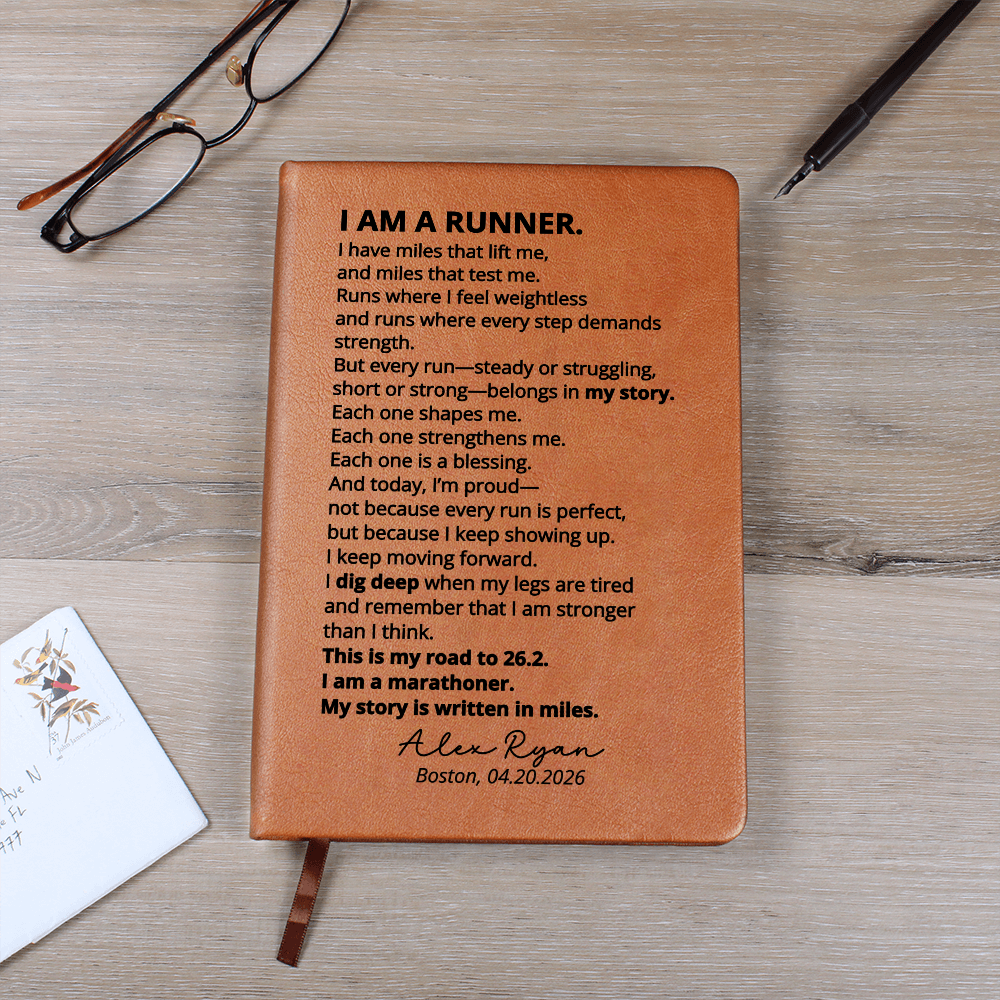 I AM A RUNNER.
I have miles that lift me,
and miles that test me.
Runs where I feel weightless
and runs where every step demands
strength.
But every run—steady or struggling,
short or strong—belongs in my story.
Each one shapes me.
Each one strengthens me.
Each one is a blessing.
And today, I’m proud—
not because every run is perfect,
but because I keep showing up.
I keep moving forward.
I dig deep when my legs are tired
and remember that I am stronger
than I think.
This is my road to 26.2.
I am a marathoner.
My story is written in miles.
Alex Ryan
Boston, 04.20.2026
John James Audubon
Ave N
FL